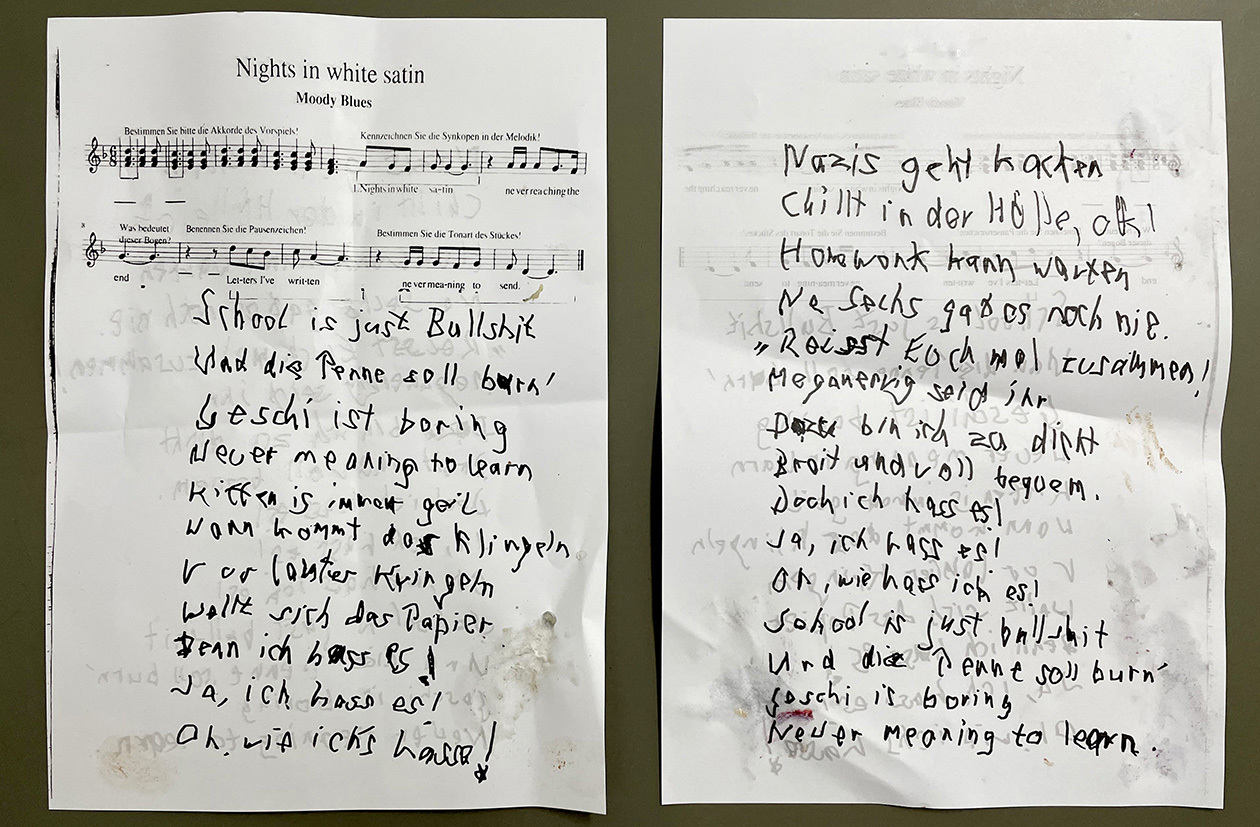 Nights in white satin
Moody Blues
Bestimmen Sie bitte die Akkorde des Vorspiels!
Kennzeichnen Sie die Synkopen in der Melodik!
1.Nights in white sa-tin ne ver rea ching the
8
Was bedeutet dieser Bogen?
Benennen Sie die Pausenzeichen!
Bestimmen Sie die Tonart des Stückes!
end Let-ters I've writ-ten ne ver mea-ning to send.
School is just Bullshit
Und die Penne soll burn'
Geschi ist boring
Never meaning to learn
Kiffen is immer geil
Wann kommt das Klingeln
Vor lauter Kringeln
Wellt sich das Papier
Denn ich hass es!
Ja, ich hass es!
Oh, wie ichs hasse!
Nazis geht kacken
Chillt in der Hölle, off!
Homework kann warten
Ne Sechs gab es noch nie.
„Reisst Euch mal zusammen!
Meganervig seid ihr
Dazu bin ich zu dicht
Breit und voll bequem.
Doch ich hass es!
Ja, ich hass es!
Oh, wie hass ich es!
School is just bullshit
Und die Penne soll burn'
Geschi is boring
Never meaning to learn.